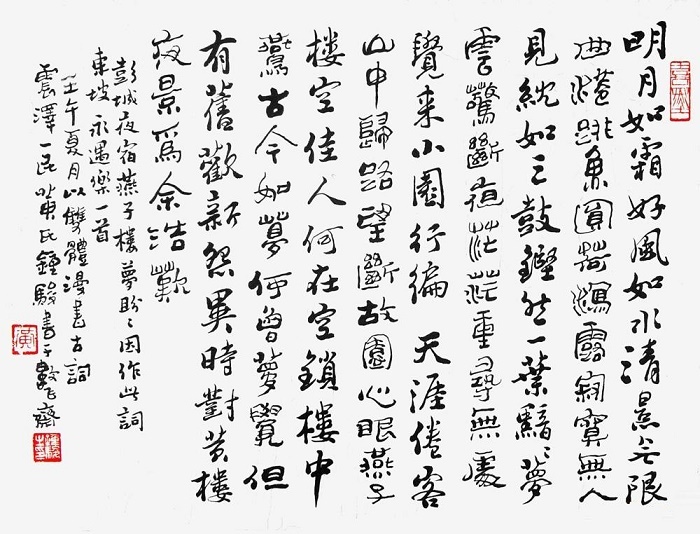 明月如霜好風如水清景无限
曲港跳魚圓荷瀉露寂寞無人
見紞如三鼓鏗然一葉黯〻夢
雲驚斷夜茫茫重尋無處
覺來小園行徧 天涯倦客
山中歸路望斷故園心眼燕子
樓空佳人何在空鎖樓中
燕古今如夢何曾夢覺但
有舊歡新怨異時對黃樓
夜景爲余浩歎
彭城夜宿燕子樓夢盼〻因作此詞
東坡永遇樂一首
壬午夏月以雙體漫書古詞
震澤一民氏鍾駿書于齋